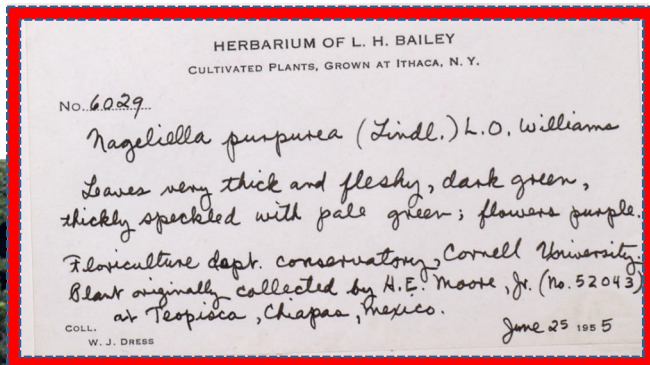 HERBARIUM OF L. H. BAILEY
CULTIVATED PLANTS, GROWN AT ITHACA, N. Y.
No. 6029
Nageliella purpurea (Lindl.) L.O. Williams
Leaves very thick and fleshy, dark green,
thickly speckled with pale green; flowers purple.
Floriculture dept. conservatory, Cornell University
Plant originally collected by H.E. Moore, Jr. (No. 52043)
at Teopisca, Chiapas, Mexico.
COLL.
W. J. DRESS
June 25 1955